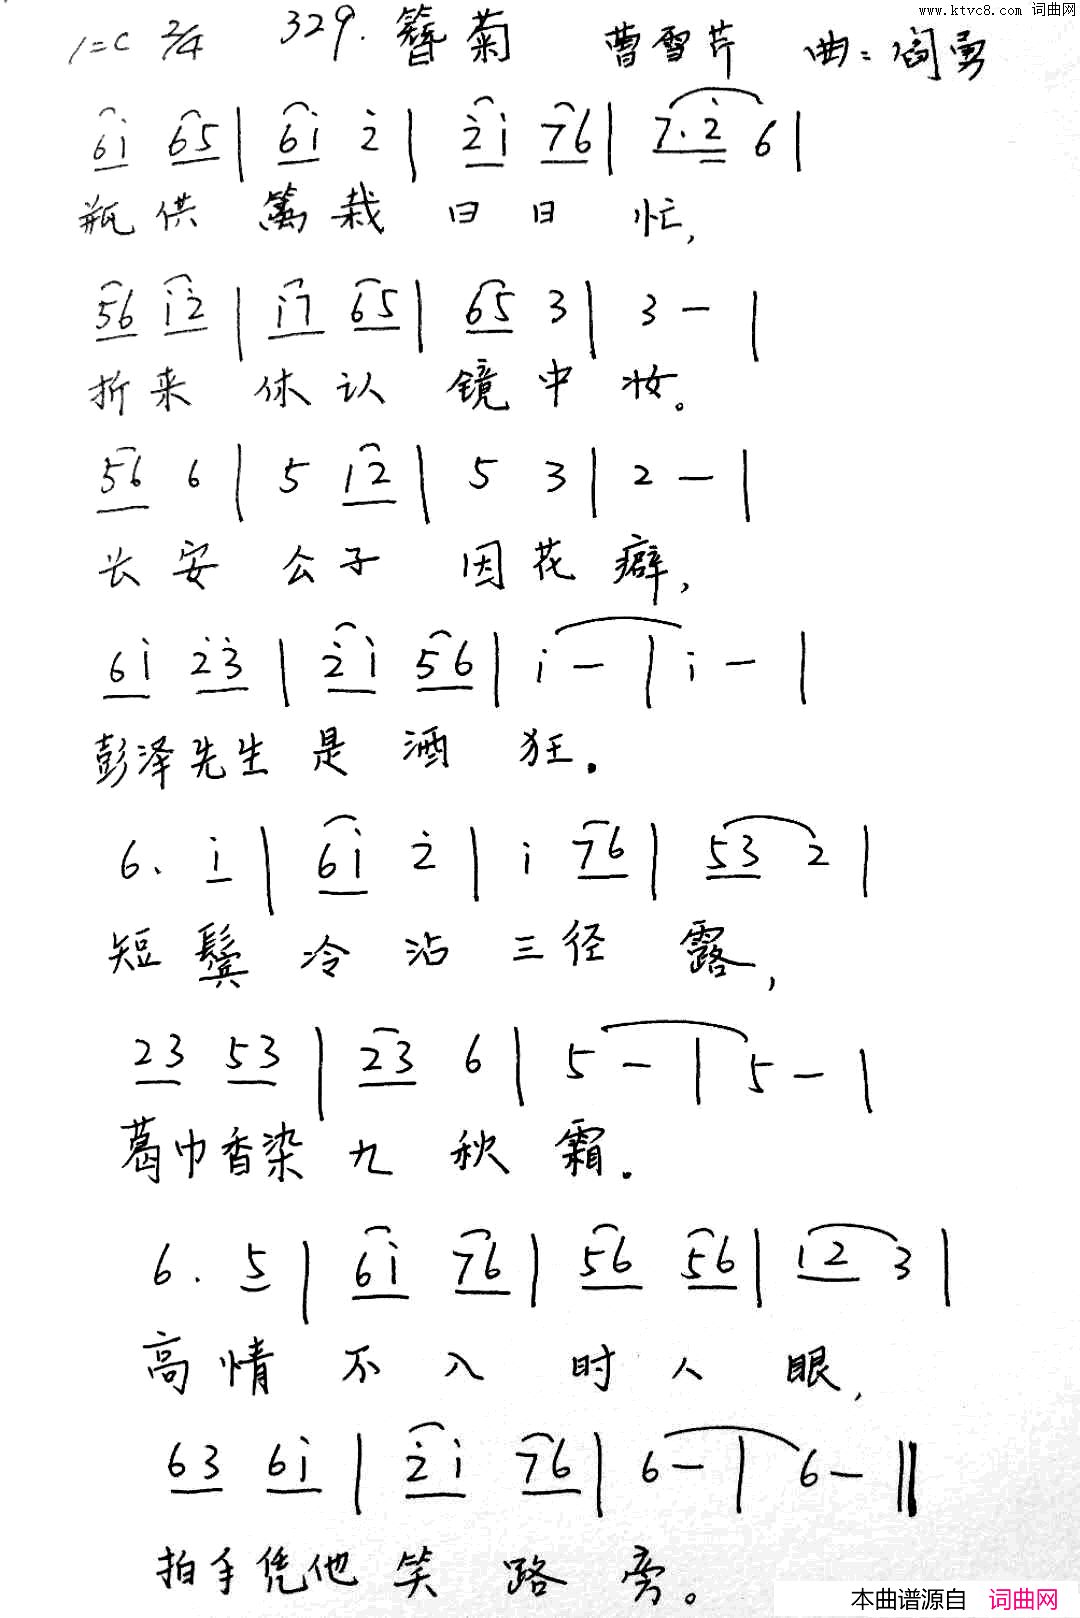 www.ktvc8.com 词曲网
1=C 2/4 329.簪菊 曹雪芹 曲:阎勇
6i 65 | 6i 2̇ | 2̇i 76 | 7.2̇ 6 |
瓶供 篱栽 日日 忙,
56 i2̇ | i7 65 | 65 3 | 3 - |
折来 休认 镜中 妆。
56 6 | 5 12 | 5 3 | 2 - |
长安 公子 因花癖,
6i 2̇3̇ | 2̇i 56 | i - | i - |
彭泽先生 是 酒 狂.
6. i | 6i 2̇ | i 76 | 53 2 |
短鬓 冷 沾 三径 露,
23 53 | 23 6 | 5 - | 5 - |
葛巾香染 九 秋 霜.
6. 5 | 6i 76 | 56 56 | 12 3 |
高情 不 入 时人 眼,
63 6i | 2̇i 76 | 6 - | 6 - ‖
拍手凭他 笑 路 旁。
本曲谱源自 词曲网